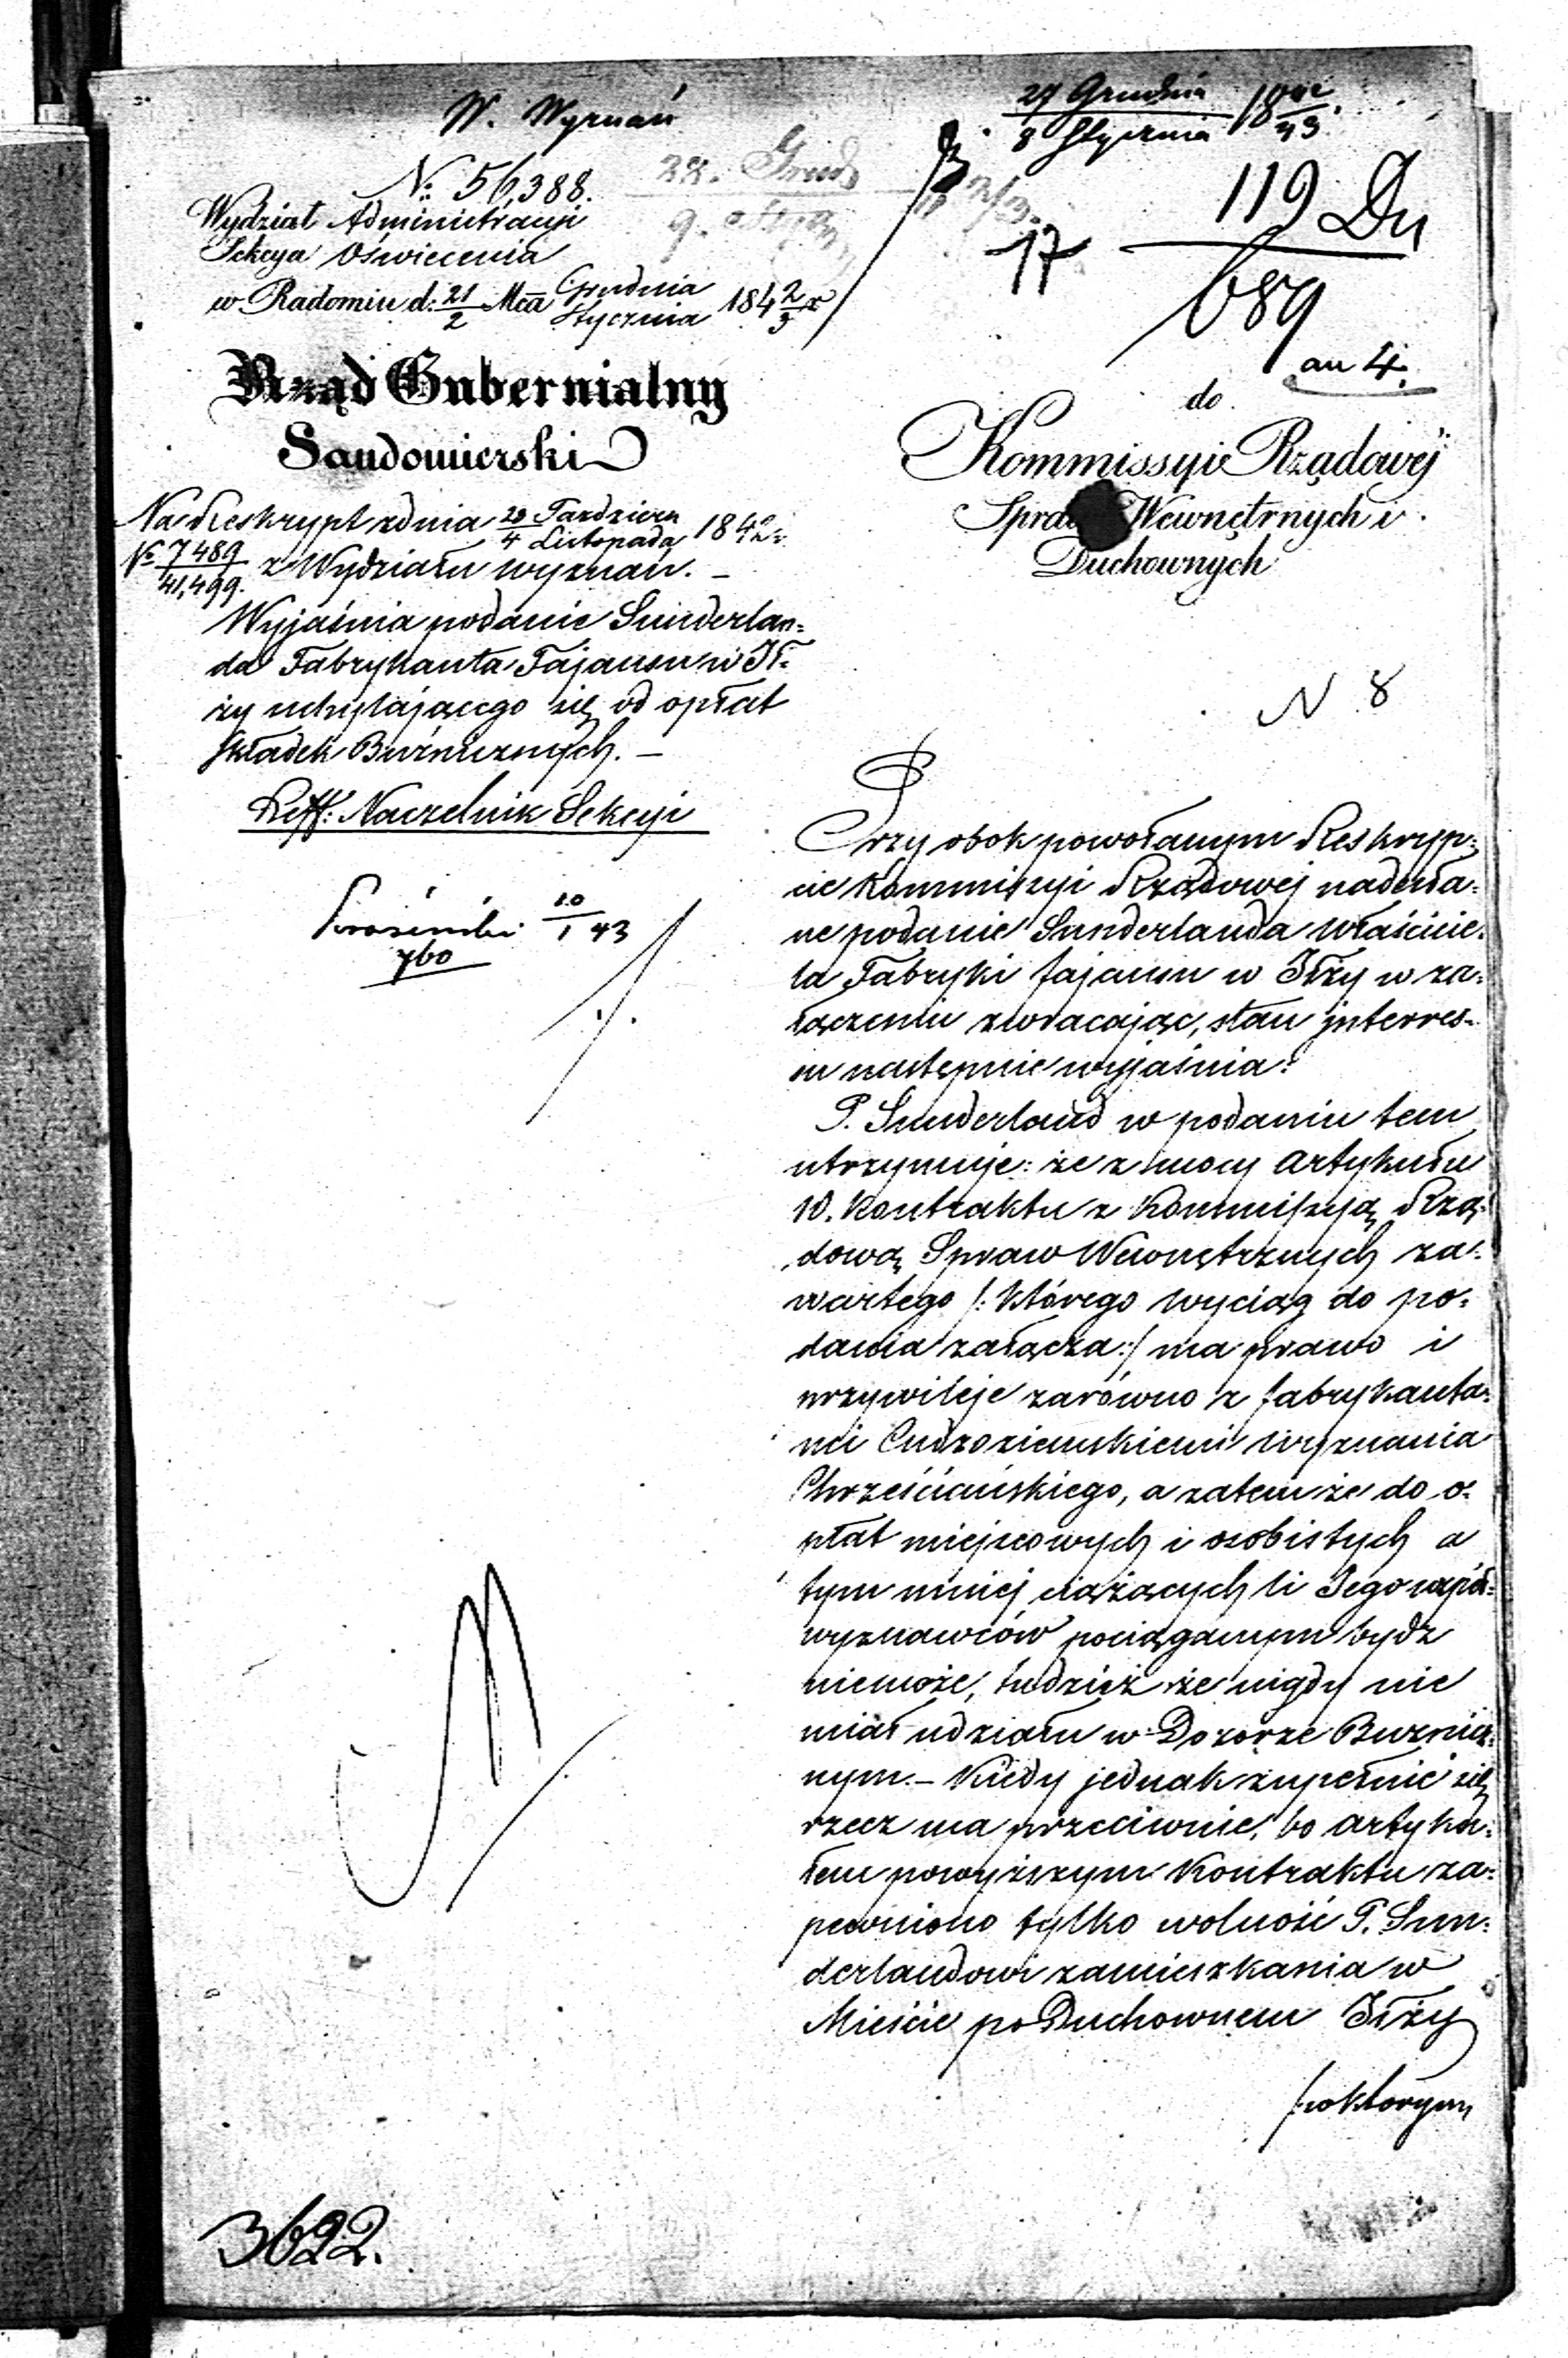 W. Wyznań
27 Grudnia
8 Stycznia
No 56,388.
28. Grud
9.
Wydział Administracyi
Sekcya Oświecenia
w Radomiu d: 21/2 Mca Grudnia
Stycznia 1842/3 r
119 Du
17
689
an 4.
Rząd Gubernialny
Sandomierski
do
Kommissyi Rządowéj
Spraw Wewnętrznych i
Duchownych
Na Reskrypt zdnia 23 Paździer
4 Listopada 1842 r.
No 7489
41,499. z Wydziału wyznań. –
Wyjaśnia podanie Sunderlan=
da Fabrykanta Fajansu w Ił=
ży uchylającego się od opłat
składek Bużnicznych. –
Reff: Naczelnik Sekcyi
10
1 43
760
N 8
Przy obok powołanym Reskryp=
cie Kommissyi Rządowej nadesła=
ne podanie Sunderlanda właścicie=
la Fabryki fajansu w Iłży w za=
łączeniu zwracając, stan interres=
su następnie wyjaśnia:
P. Sunderland w podaniu tem
utrzymuje: że z mocy Artykułu
10. Kontraktu z Kommissyą Rzą=
dową Spraw Wewnętrznych za=
wartego /: którego wyciąg do po=
dania załącza :/ ma prawo i
przywileje zarówno z fabrykanta=
mi Cudzoziemskiemi wyznania
Chrześciańskiego, a zatem że do o=
płat miejscowych i osobistych a
tym mniej ciążących li Jego współ=
wyznawców pociąganym bydz
niemoże, tudzież że nigdy nie
miał udziału w Dozorze Bużnicz=
nym. – Kiedy jednak zupełnie się
rzecz ma przeciwnie, bo artyku=
łem powyższym Kontraktu za=
pewniono tylko wolność P. Sun=
derlandowi zamieszkania w
Mieście po Duchownem Iłży
/:w którym
3622.